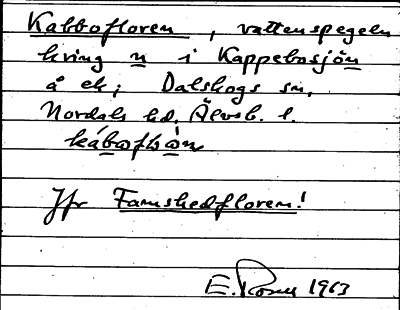 Kabbofloren, vattenspegeln
kring n i Kappebosjön
å ek; Dalskogs sn,
Nordals hd. Älvsb. l.
Jfr Famshedfloren!
E. 1963